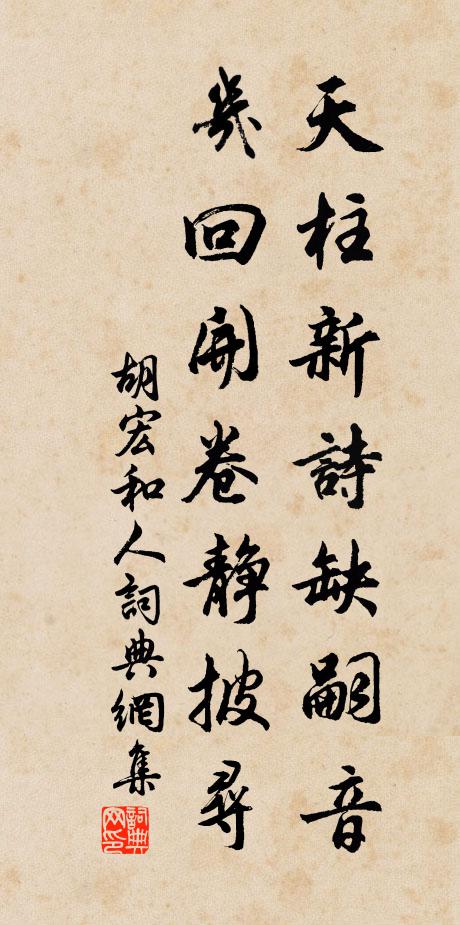 天柱新詩缺嗣音
幾回開卷靜披尋
胡宏和人詞典網集
詞典网印